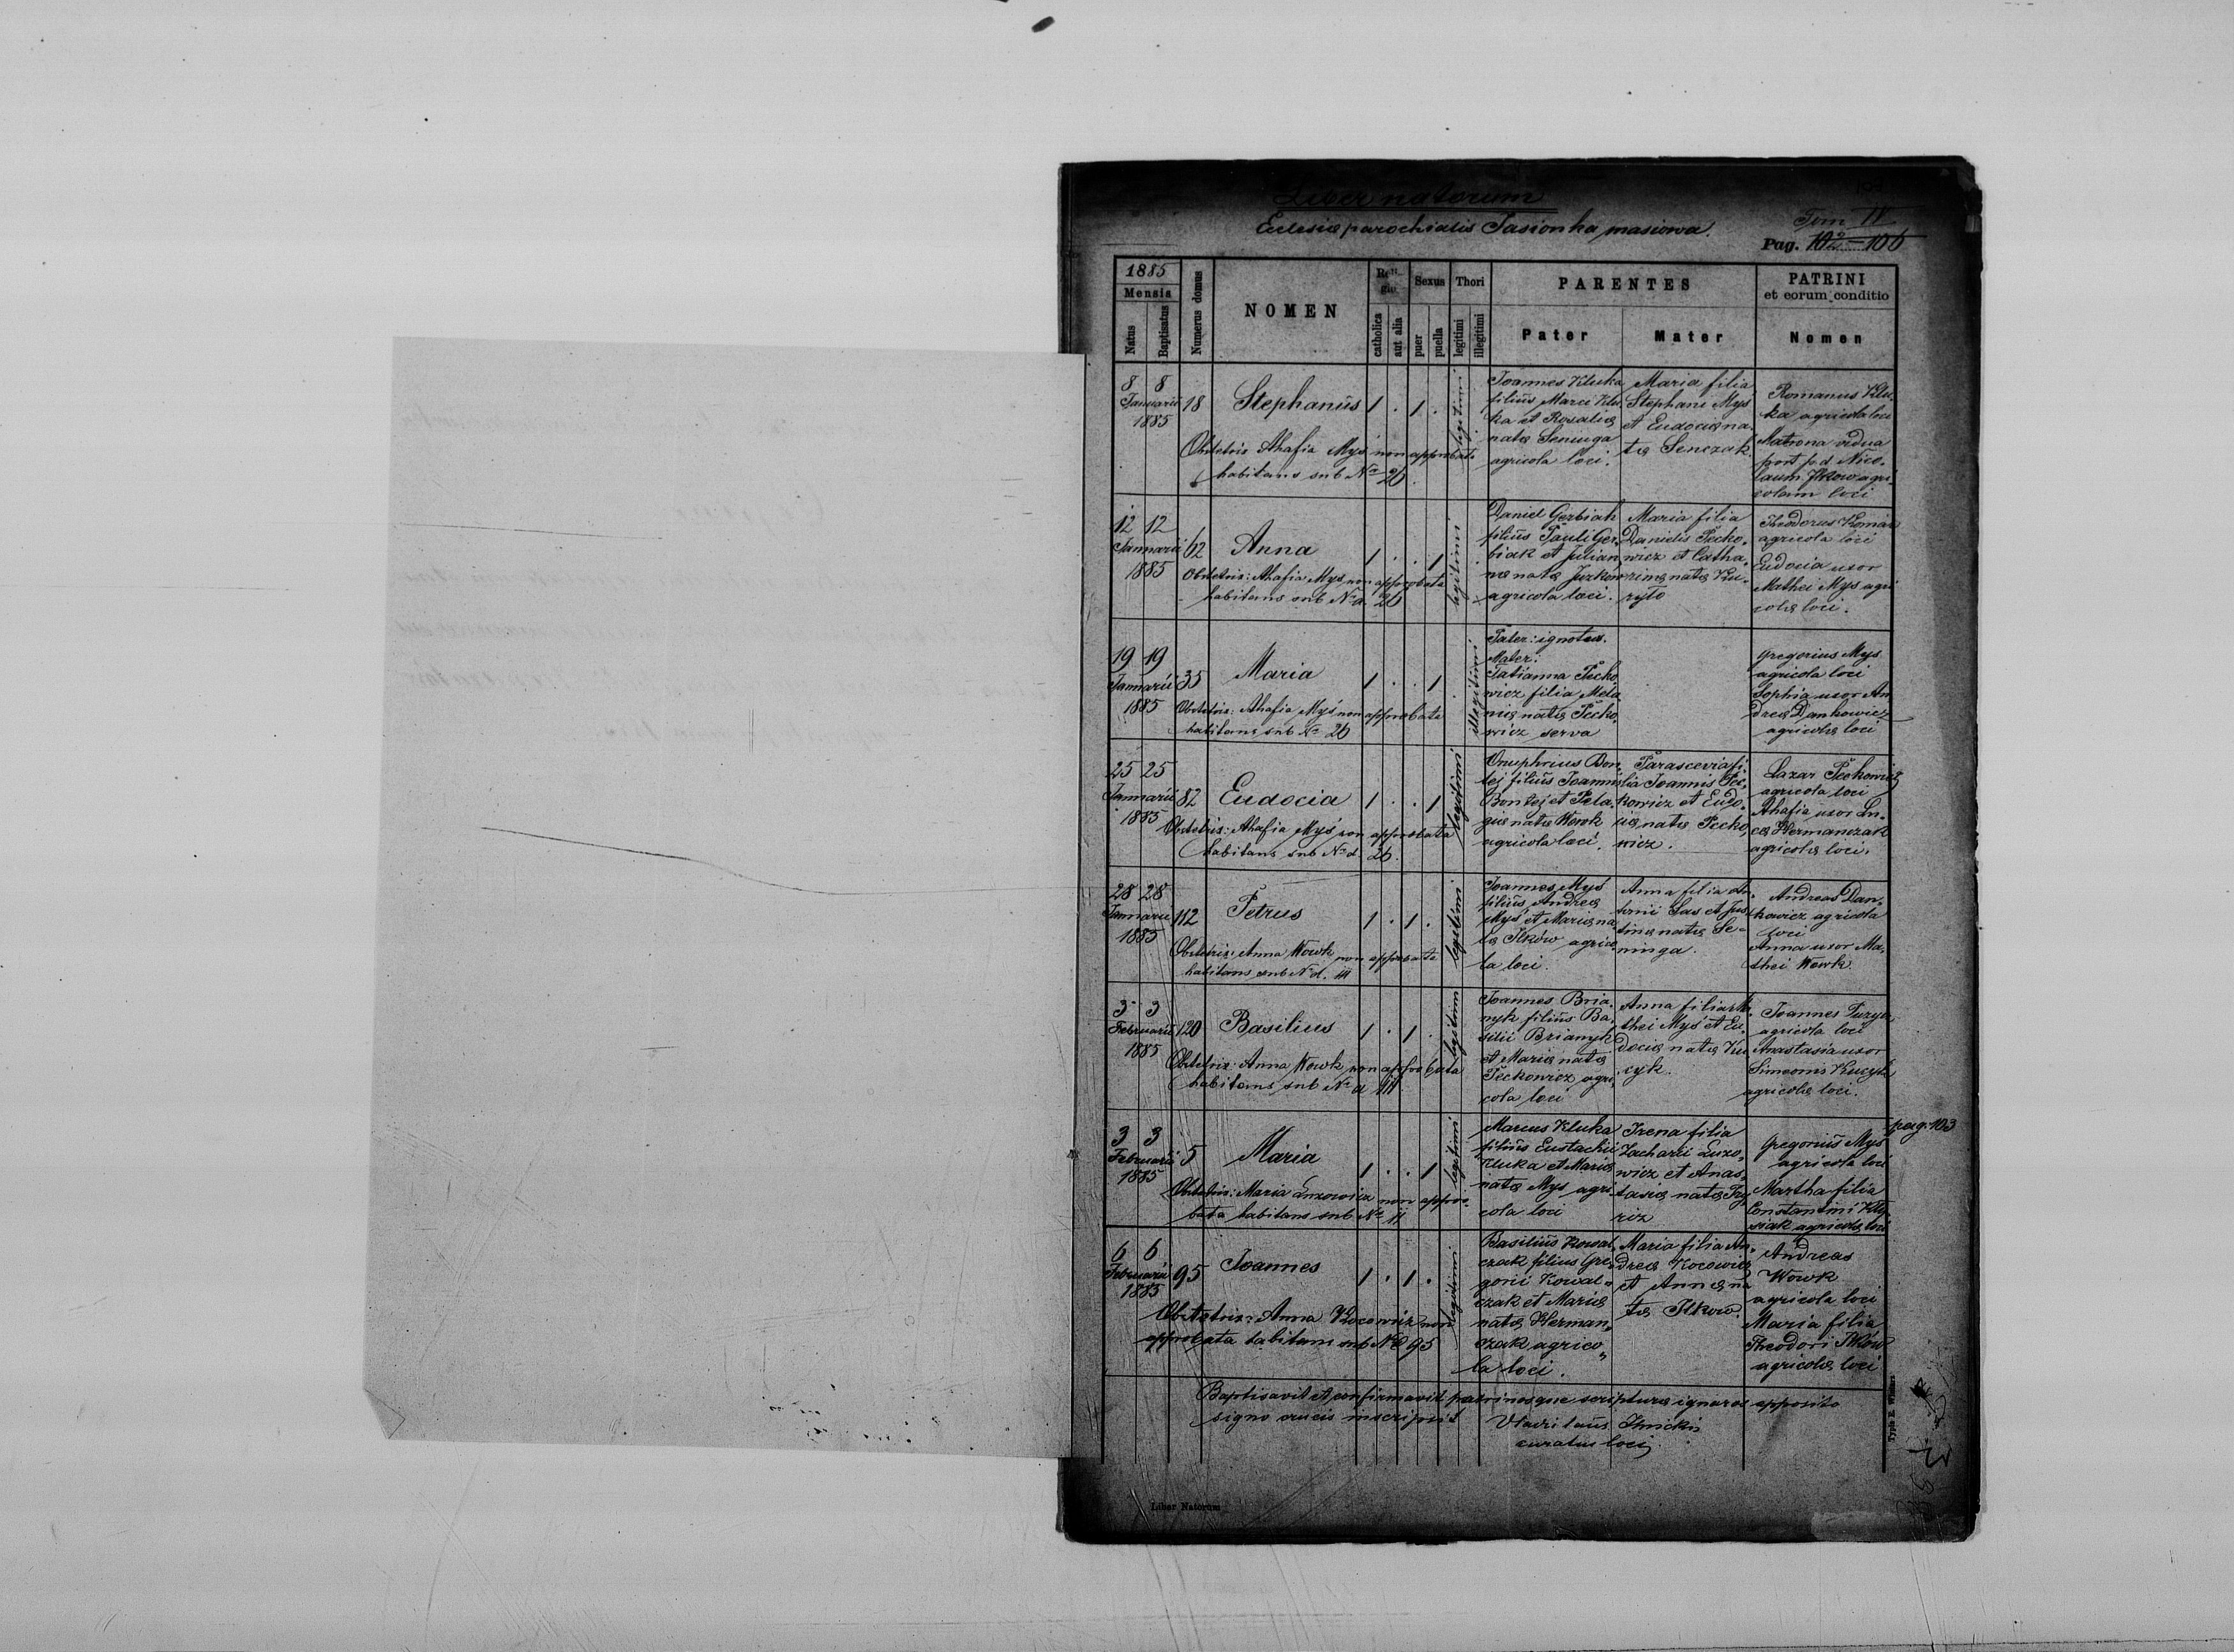 Liber natorum
Eclesiæ parochialis Jasionka masiowa.
Tom IV
Pag. 102-106
1885
Mensis
Natus
Baptisatus
Numerus domus
NOMEN
Religio
catholica
aut alia
Sexus
puer
puella
Thori
legitimi
illegitimi
PARENTES
Pater
Mater
PATRINI
et eorum conditio
Nomen
8 8
Januarii
1885
18
Stephanus
1 . 1 .
legitimi
Obstetrix Ahafia Myś non approbata
habitans sub No 26.
Joannes Kluka
filius Marci Klu
ka et Rosaliæ
natæ Seniuga
agricola loci.
Maria filia
Stephani Myś
et Eudociæ na.
tæ Senczak
Romanus Klu.
ka agricola loci
Matrona vidua
post p.d Nico.
laum Ilkow agri.
colam loci
12 12
Januarii
1885
62
Anna
1 . . 1
legitimi
Obstetrix: Ahafia Myś non approbata
habitans sub No d. 26
Daniel Gerbiak
filius Pauli Ger.
biak et Julian
næ natæ Jurków
agricola loci.
Maria filia
Danielis Pećko.
wicz et Catha.
rinæ natæ Ku.
ryło
Theodorus Komar
agricola loci
Eudocia uxor
Mathei Mys agri
colæ loci.
19 19
Januarii
1885
35
Maria
1 . . 1
illegitimi
Obstetrix: Ahafia Myś non approbata
habitans sub No 26
Pater: ignotus.
Mater:
Tatianna Pećko
wicz filia Mela
niæ natæ Pećko.
wicz serva
Gregorius Mys
agricola loci
Sophia uxor An
dreæ Dankowicz
agricolæ loci
25 25
Januarii
1885
82
Eudocia
1 . . 1
legitimi
Obstetrix: Ahafia Myś non approbata
habitans sub No d. 26.
Onuphrius Bon.
tej filius Joannis
Bontej et Pela.
giæ natæ Wowk
agricola loci.
Parascevia fi.
lia Joannis Peć.
kowicz et Eudo.
ciæ natæ Pećko.
wicz.
Lazar Pećkowicz
agricola loci
Ahafia uxor Lu.
cæ Hermanczak
agricolæ loci.
28 28
Januarii
1885
112
Petrus
1 . 1 .
legitimi
Obstetrix: Anna Wowk non approbata
habitans sub No d. 111
Joannes Myś
filius Andreæ
Myś et Mariæ na
tæ Ilków agrico.
la loci.
Anna filia An.
tonii Sas et Jus
tinæ natæ Se-
ninga.
Andreas Dan.
kowicz agricola
loci
Anna uxor Ma.
thei Wowk
3 3
Februarii
1885
120
Basilius
1 . 1 .
legitimi
Obstetrix: Anna Wowk non approbata
habitans sub No d 111
Joannes Bria.
nyk filius Ba.
silii Brianyk
et Mariæ natæ
Pećkowicz agri
cola loci
Anna filia Ma.
thei Myś et Eu.
dociæ natæ Ku
cyk.
Joannes
agricola loci
Anastasia uxor
Simeonis Kucyk
agricolæ loci.
pag. 103
3 3
Februarii
1885
5
Maria
1 . . 1
legitimi
Obstetrix: Maria Łuzowicz non appro.
bata habitans sub No 11
Marcus Kluka
filius Eustachii
Kluka et Mariæ
natæ Mys agri.
cola loci
Irena filia
Zacharii Łuzo.
wicz et Anas.
tasiæ natæ
Gregorius Myś
agricola loci
Martha filia
Constantini
agricolæ loci
6 6
Februarii
1885
95
Joannes
1 . 1 .
legitimi
Obstetrix: Anna Kocowicz non
approbata habitans sub No 95
Basilius Kowal.
czak filius Gre.
gorii Kowal-
czak et Mariæ
natæ Herman.
czak agrico„
la loci.
Maria filia An.
dreæ Kocowicz
et Annæ na
tæ Ilkow
Andreas
Wowk
agricola loci
Maria filia
Theodori Ilków
agricolæ loci
Baptisavit et confirmavit patrinosque scripturæ ignaros apposito
signo crucis inscripsit
curatus loci
Liber Natorum